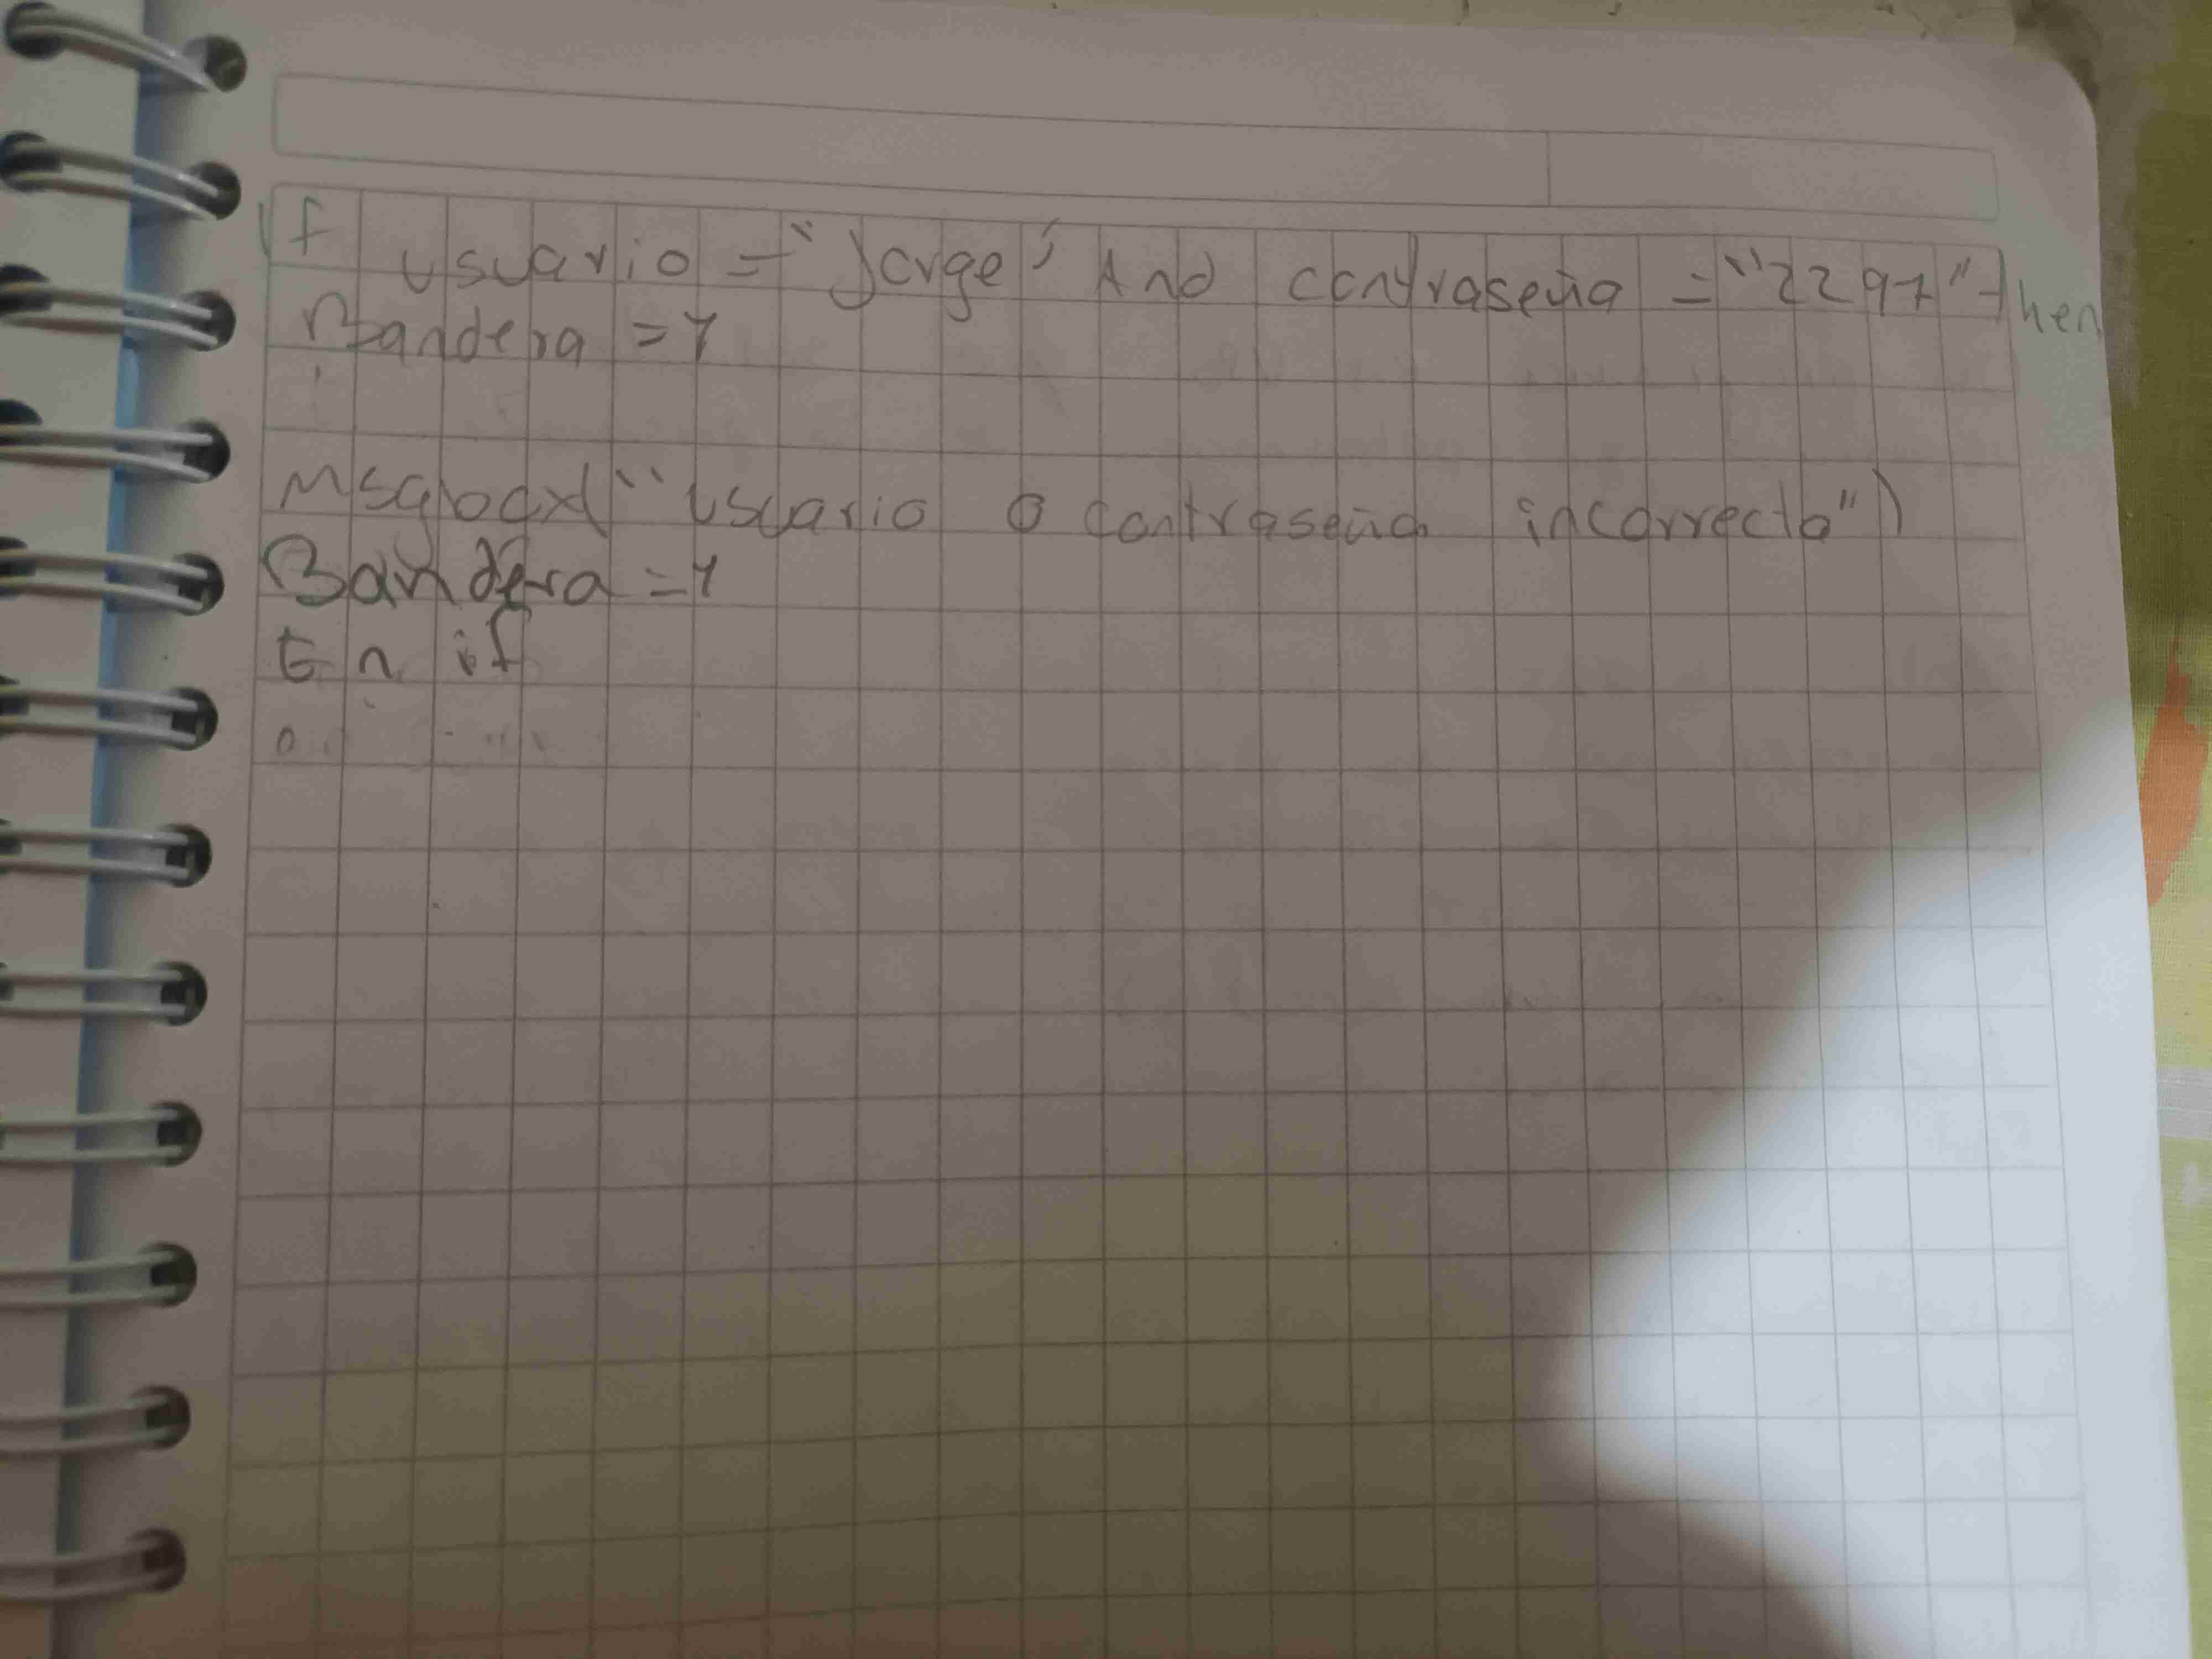 If usuario = "Jorge" And contraseña = "2297" then
Bandera = 1
Msgbox("Usuario o contraseña incorrecto")
Bandera = 1
En if